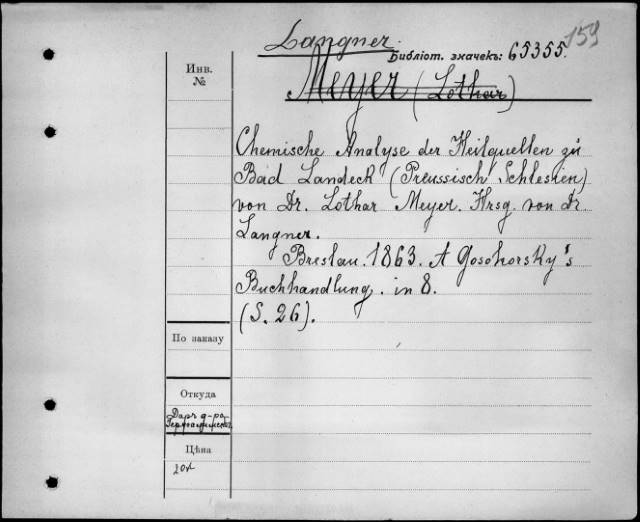 159
Langner.
Библіот. значекъ: 65355.
Инв.
№
Meyer (Lothar)
Chemische Analyse der Heilquellen zu
Bad Landeck (Preussisch Schlesien)
von Dr. Lothar Meyer. Hrsg. von Dr
Langner.
Breslau. 1863. A Gosohorsky's
Buchhandlung. in 8.
(S. 26).
По заказу
Откуда
Даръ д-ра
Цѣна